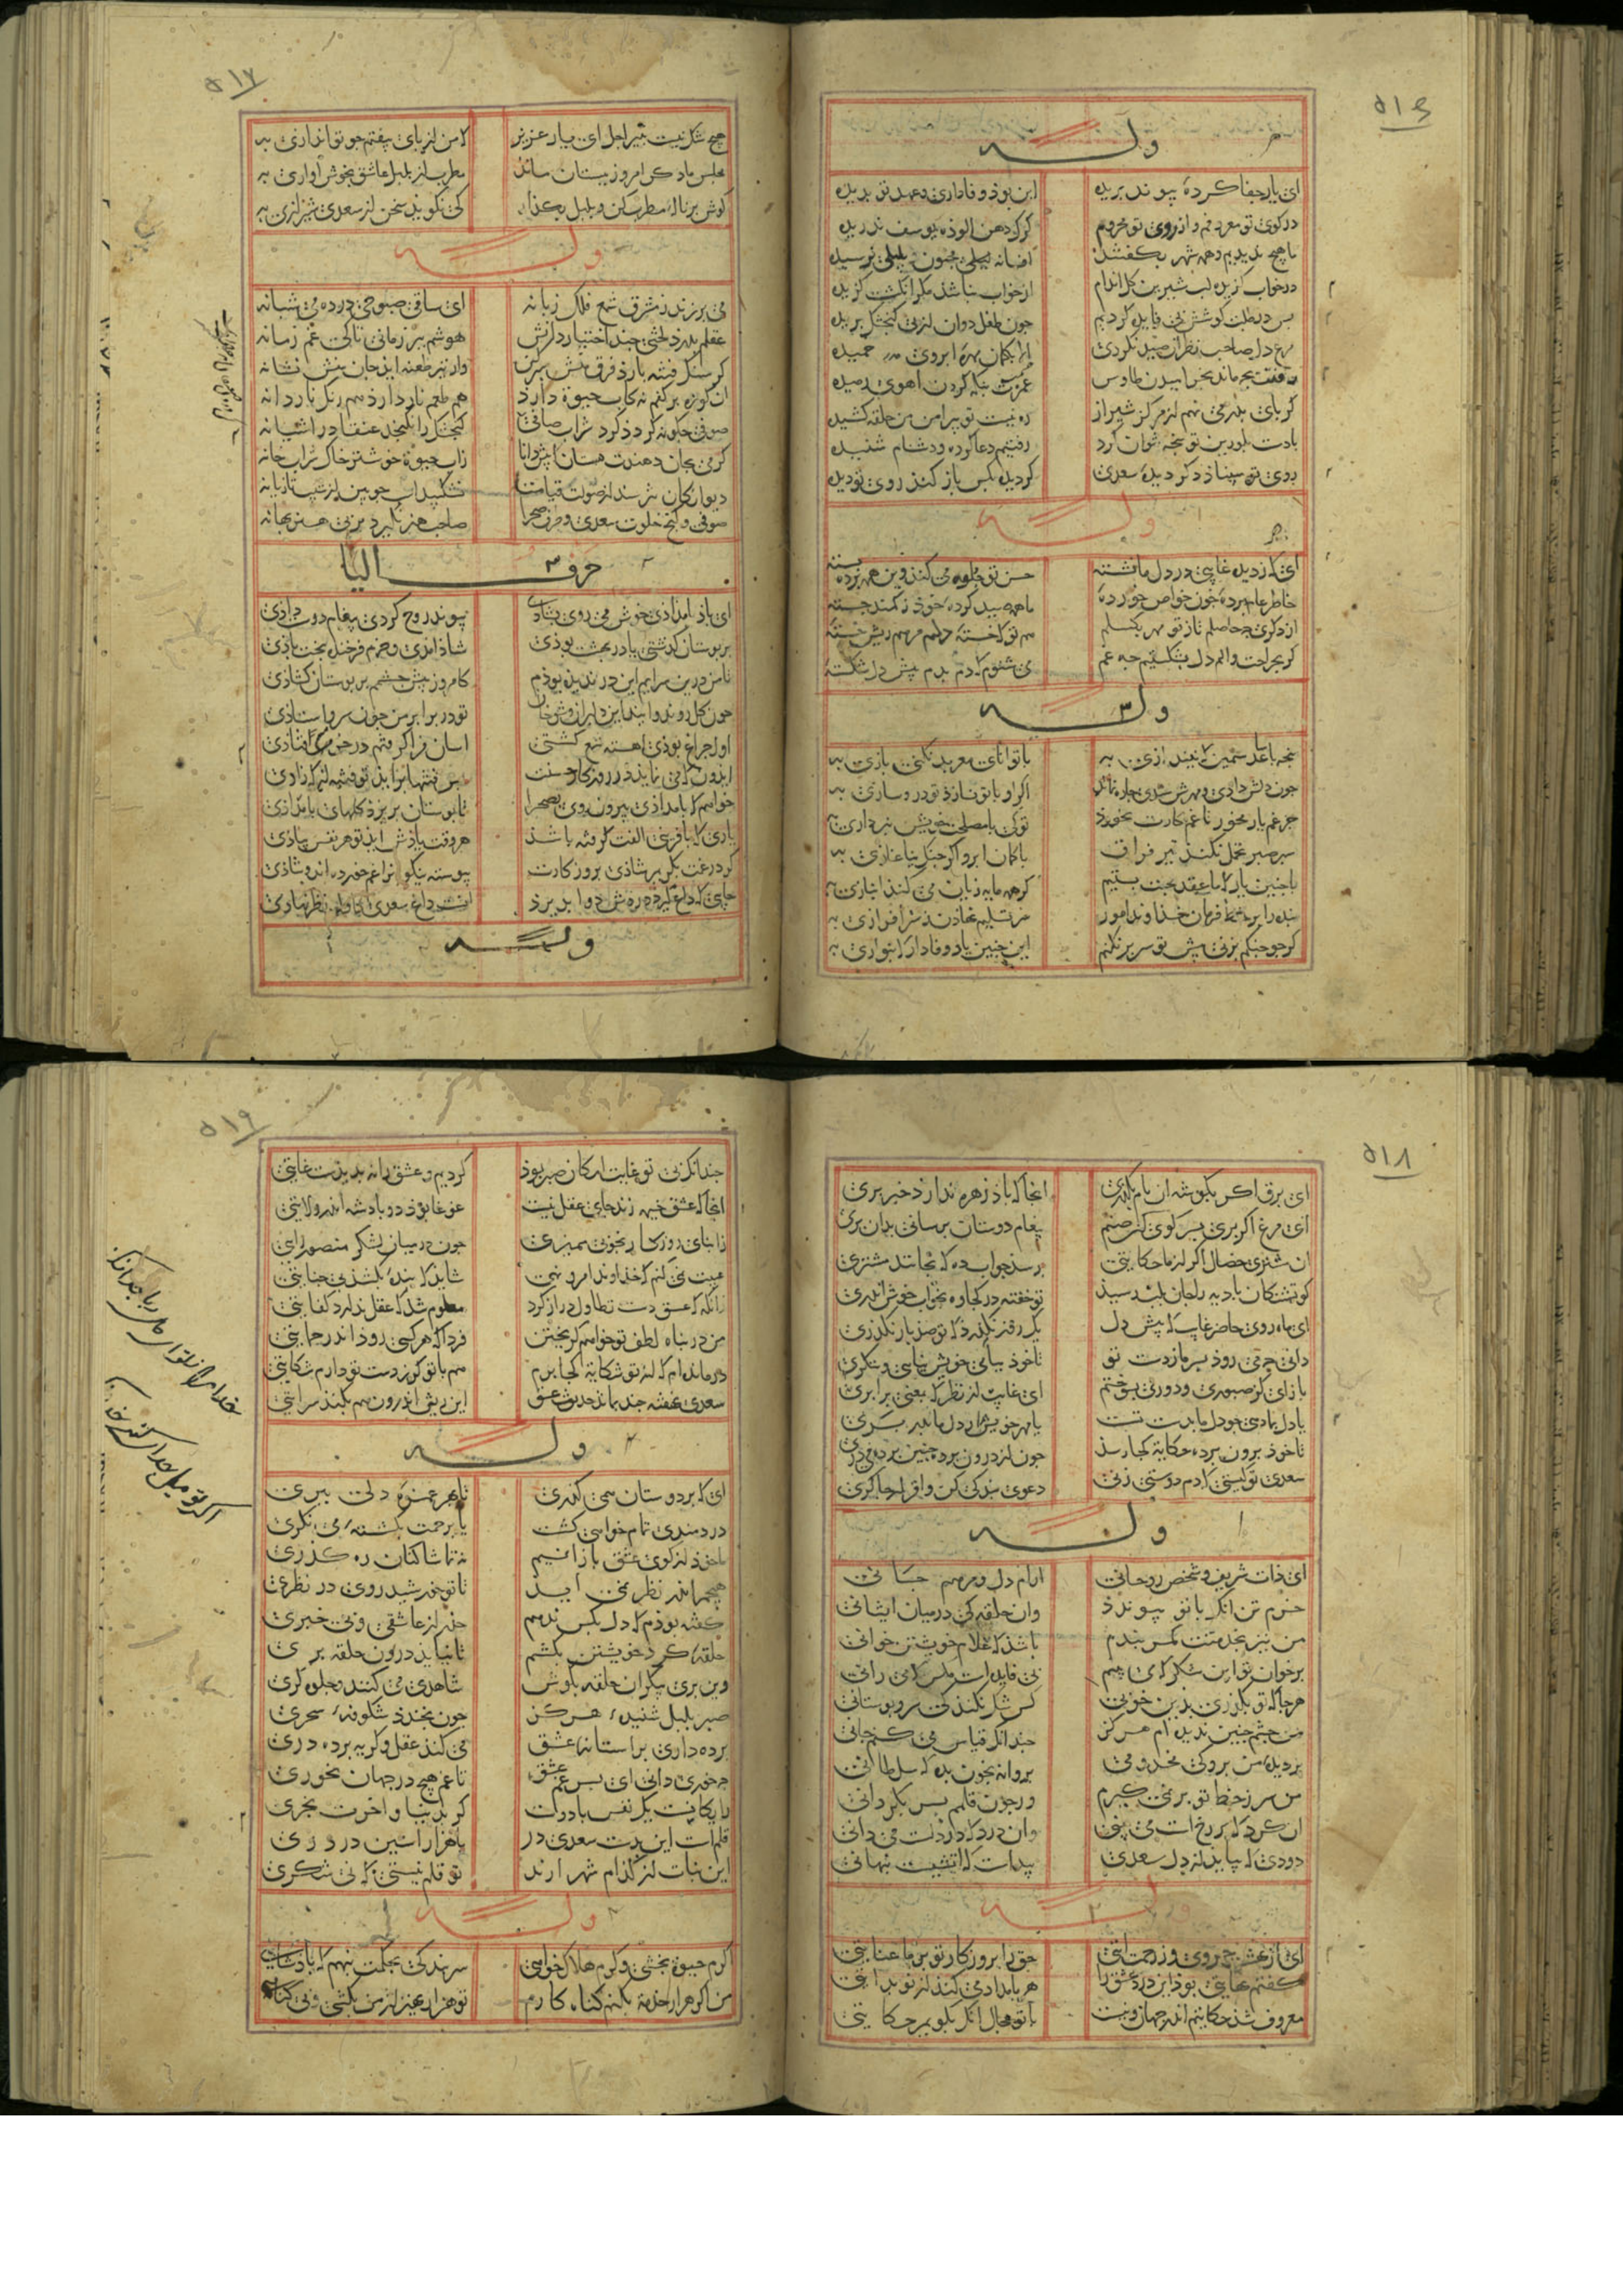 ۵۱۶
وله
ای یار جفا کرده پیوند بریده این بوذ وفاداری و عهد تو بدیده
در کوی تو معروفم و از روی تو محروم کرک دهن الوذه یوسف ندریده
ما هیچ ندیدیم و همه شهر بکفتند افسانه لیلی مجنون بلیلی نرسیده
در خواب کزیده لب شیرین کل اندام از خواب نباشد مکر انکشت کزیده
بس در طلبت کوشش بی فایده کردیم جون طفل دوان از پی کنجشک بریده
مرغ دل صاحب نظران صید نکردی الا بکمان مهره ابروی خمیده
رفتنت بجه ماند بخرامیدن طاوس غمزت بنکه کردن اهوی رمیده
کر بای بدر می نهم از مرکز شیراز ره نیست تو بیرامن من حلقه کشیده
با دست بلورین تو بنجه نتوان کرد رفتیم دعا کرده و دشنام شنیده
روی تو مبیناذ دکر دیده سعدی کر دیده بکس باز کند روی تو دیده
وله
ای که ز دیده غایبی در دل ما نشسته حسن تو جلوه می کند وین همه برده بسته
خاطر عام برده خون خواص خورده ما همه صید کرده خوذ ز کمند جسته
از دکری چه حاصلم تا ز تو مهر بکسلم هم تو که خسته دلم مرهم ریش خسته
کر بجراحت و الم دل بشکستیم چه غم می شنوم که دم بدم پیش دل شکسته
وله
بنجه با ساعد سیمین که نیندازی به با توانای معربد نکنی بازی به
جون دلش داذی و مهرش ستدی چاره نماند اکر او با تو نسازذ تو درو سازی به
جز غم یار مخور تا غم کارت بخورذ تو که با مصلحت خویش نبردازی به
سبر صبر تحمل نکند تیر فراق با کمان ابرو اکر جنک نیاغازی به
با جنین یار که ما عقد محبت بستیم کر همه مایه زیان می کند انبازی به
بنده را بر خط فرمان خذاوند امور سر تسلیم نهاذن ز سرافرازی به
کر جو جنکم بزنی پیش تو سر بر نکنم این جنین یار وفادار که بنوازی به
۵۱۷
هیچ شک نیست بتیر اجل ای یار عزیز که من از بای بیفتم جو تو اندازی به
مجلس ما دکر امروز ببستان ماند مطرب از بلبل عاشق بخوش اوازی به
کوش بر ناله مطرب کن و بلبل بکذار که نکوید سخن از سعدی شیرازی به
وله
می برزند ز مشرق شمع فلک زبانه ای ساقی صبوحی در ده می شبانه
عقلم بدزد لختی چند اختیار دانش هوشم ببر زمانی تا کی غم زمانه
کر سنک فتنه بارذ فرق منش سبر کن ور تیر طعنه ایذ جان منش نشانه
ان کوزه بر کفم نه کاب حیوة دارذ هم طعم نار دارذ هم رنک ناردانه
صوفی چکونه کردذ کرد شراب صافی کنجشک را نکنجد عنقا در اشیانه
کر می بجان دهندت بستان که پیش دانا زاب حیوة خوشتر خاک شرابخانه
دیوانکان نترسند از صولت قیامت نشکیبد اسب جوبین از سیخ تازیانه
صوفی و کنج خلوت سعدی و طرف صحرا صاحب هنر نکیرد بر بی هنر بهانه
حرف الیا
ای باذ بامداذی خوش می روی بشاذی پیوند روح کردی پیغام دوست داذی
بر بوستان کذشتی یا در بهشت بوذی شاذ امدی و خرم فرخنده بخت باذی
تا من درین سرایم این در ندیده بوذم کامروز پیش جشمم بر بوستان کشاذی
جون کل روند و ایند این دلبران و خوبان تو در برابر من جون سرو ایستاذی
اول جراغ بوذی اهسته شمع کشتی اسان فرا کرفتم در خرمن اوفتاذی
خواهم که بامداذی بیرون روی بصحرا تا بوستان بریزذ کلهای بامداذی
یاری که با قرینی الفت کرفته باشد هر وقت یاذش ایذ تو هر نفس بیاذی
کر در غمت بمیرم شاذی بروز کارت پیوسته نیکوانرا غم خورده اند و شاذی
جای که داغ کیرد دردش دوا بذیرد انست داغ سعدی کاول نظر نهاذی
وله
۵۱۸
ای برق اکر بکوشه ان بام بکذری انجا که باذ زهره ندارذ خبر بری
ای مرغ اکر بری بسر کوی ان صنم بیغام دوستان برسانی بدان بری
ان مشتری خصال اکر از ما حکایتی برسذ جواب ده که بجانند مشتری
کو تشنکان بادیه را جان بلب رسید تو خفته در کجاوه بخواب خوش اندری
ای ماه روی حاضر غایب که پیش دل یک روز نکذرذ که تو صذ بار نکذری
دانی چه می روذ بسر ما ز دست تو تا خوذ ببای خویش بیایی و بنکری
باز ای کز صبوری و دوری بسوختیم ای غایب از نظر که بمعنی برابری
یا دل بما دهی جو دل ما بدست تست یا مهر خویشتن ز دل ما بدر بری
تا خوذ برون برده حکایت کجا رسذ جون از درون برده جنین برده می دری
سعدی تو کیستی که دم دوستی زنی دعوی بندکی کن و اقرار چاکری
وله
ای ذات شریف و شخص روحانی ارام دل و مرهم جانی
خرم تن انک با تو پیوندذ وان حلقه که در میان ایشانی
من نیز بخدمتت کمر بندم باشد که غلام خویشتن خوانی
بر خوان تو این شکر که می بینم بی فایده است مکس که می رانی
هر جا که تو بکذری بدین خوبی کس شک نکند که سرو بوستانی
من جشم جنین ندیده ام هرکز جندانک قیاس می کنم جانی
بر دیده من برو که مخدومی بروانه بخون بده که سلطانی
من سر ز خط تو بر نمی کیرم ور جون قلمم بسر بکردانی
این کرد که بر رخ است می بینی وان درد که در دلست می دانی
دودی که بیاید از دل سعدی پیداست که اتشیست پنهانی
وله
کفتم نهایتی بوذ این درد عشق را هر بامداد می کند از نو بدایتی
معروف شذ حکایتم اندر جهان و نیست با تو مجال انک بکویم حکایتی
۵۱۹
جندانک بی تو غایت امکان صبر بوذ کردیم و عشق را نه بدیذست غایتی
انجا که عشق خیمه زند جای عقل نیست غوغا بوذ دو بادشه اندر ولایتی
زابنای روزکار بخوبی ممیزی جون در میان لشکر منصور رایتی
عیبت نمی کنم که خذاوند امر و نهی شایذ که بنده بکشذ بی جنایتی
زانکه که عشق دست تطاول دراز کرد معلوم شذ که عقل نذارد کفایتی
من در بناه لطف تو خواهم کریختن فردا که هر کسی روذ اندر حمایتی
درمانده ام که از تو شکایت کجا برم هم با تو کز دست تو دارم شکایتی
سعدی نهفته جند بماند حدیث عشق این ریش اندرون بکند هم سرایتی
وله
ای که بر دوستان همی کذری تا بهر غمزه دلی ببری
دردمندی تمام خواهی کشت یا برحمت بکشته می نکری
ما خوذ از کوی عشق بازانیم نه تماشاکنان ره کذری
هیچم اندر نظر نمی اید تا تو خورشید روی در نظری
کفته بوذم که دل بکس ندهم حذر از عاشقی و بی خبری
حلقه کرد خویشتن بکشم تا نیاید درون حلقه بری
وین بری پیکران حلقه بکوش شاهدی می کنند و جلوه کری
صبر بلبل شنیده هرکز جون بخندذ شکوفه سحری
برده داری بر استانه عشق می کند عقل و کریه برده دری
جه خوری دانی ای بسر غم عشق تا غم هیچ در جهان نخوری
رایکانست یک نفس با دوست کر بدنیا و اخرت بخری
قلمست این بدست سعدی در یا هزار استین در دری
این نبات از کذام شهر ارند تو قلم نیستی که نی شکری
وله
اکرم حیوة بخشی و کرم هلاک خواهی سر بندکی بحکمت بنهم که باذشاهی
من اکر هزار خدمت بکنم کناه کارم تو هزار خون از من بکنی و بی کناهی